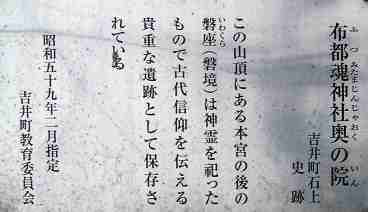 布都魂神社奥の院
ふつみたまじんじゃおくいん
吉井町石上
史跡
この山頂にある本宮の後の
磐座(磐境)は神霊を祀った
いわくら
もので古代信仰を伝える
貴重な遺跡として保存さ
れている
昭和五十九年二月指定
吉井町教育委員会